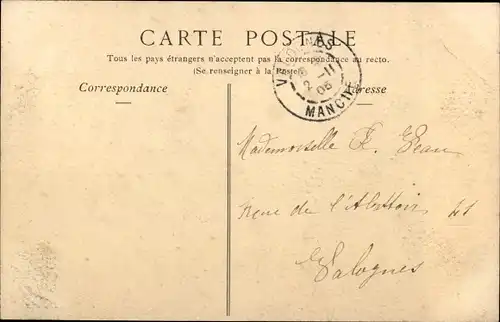 CARTE POSTALE
Tous les pays étrangers n'acceptent pas la correspondance au recto.
(Se renseigner à la Poste)
Correspondance
Adresse
VALOGNES
2 -11
05
MANCHE
Mademoiselle
rue de l'Abattoir
Valognes